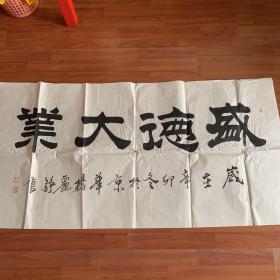 盛德大業
歲在辛卯冬於京華楊麗静書